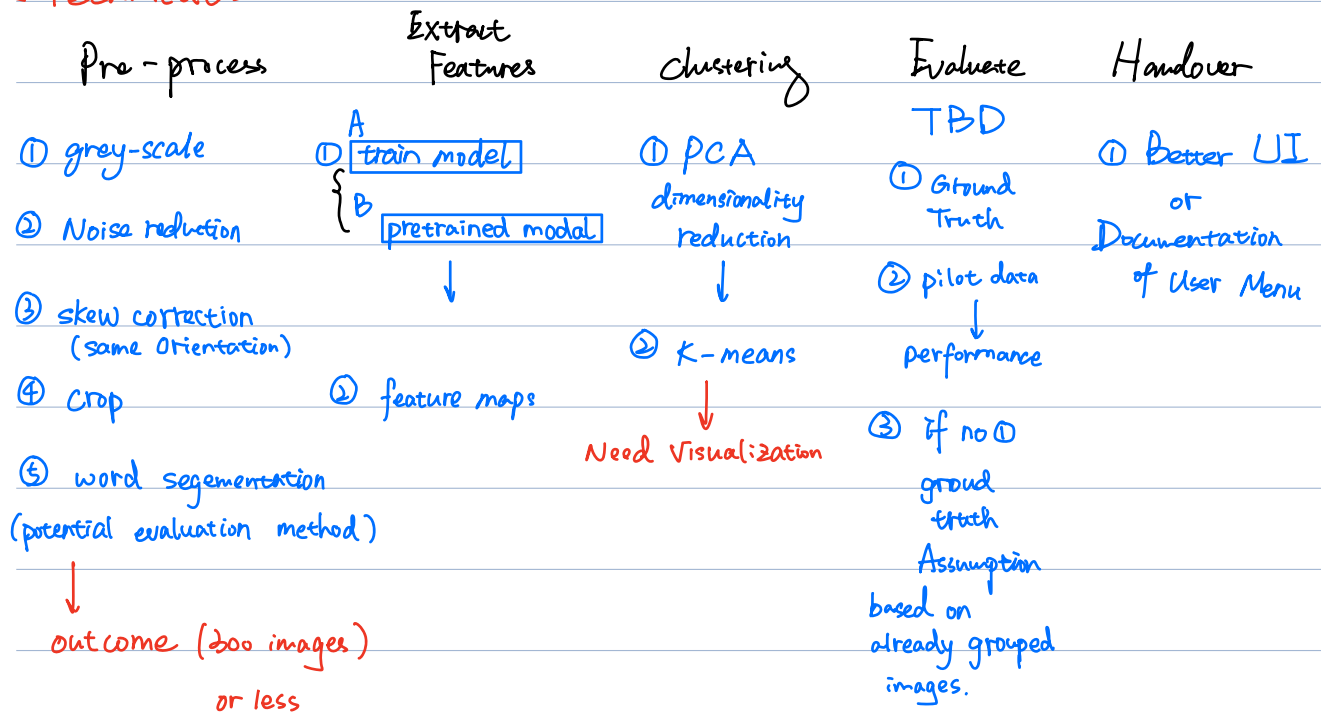 Pre-process
① grey-scale
② Noise reduction
③ skew correction
(same Orientation)
④ crop
⑤ word segementation
(potential evaluation method)
outcome (300 images)
or less
Extract
Features
A
① train model
B
pretrained modal
② feature maps
clustering
① PCA
dimensionality
reduction
② K-means
Need Visualization
Evaluate
TBD
① Ground
Truth
② pilot data
performance
③ if no ①
groud
truth
Assumption
based on
already grouped
images.
Handover
① Better UI
or
Documentation
of User Menu